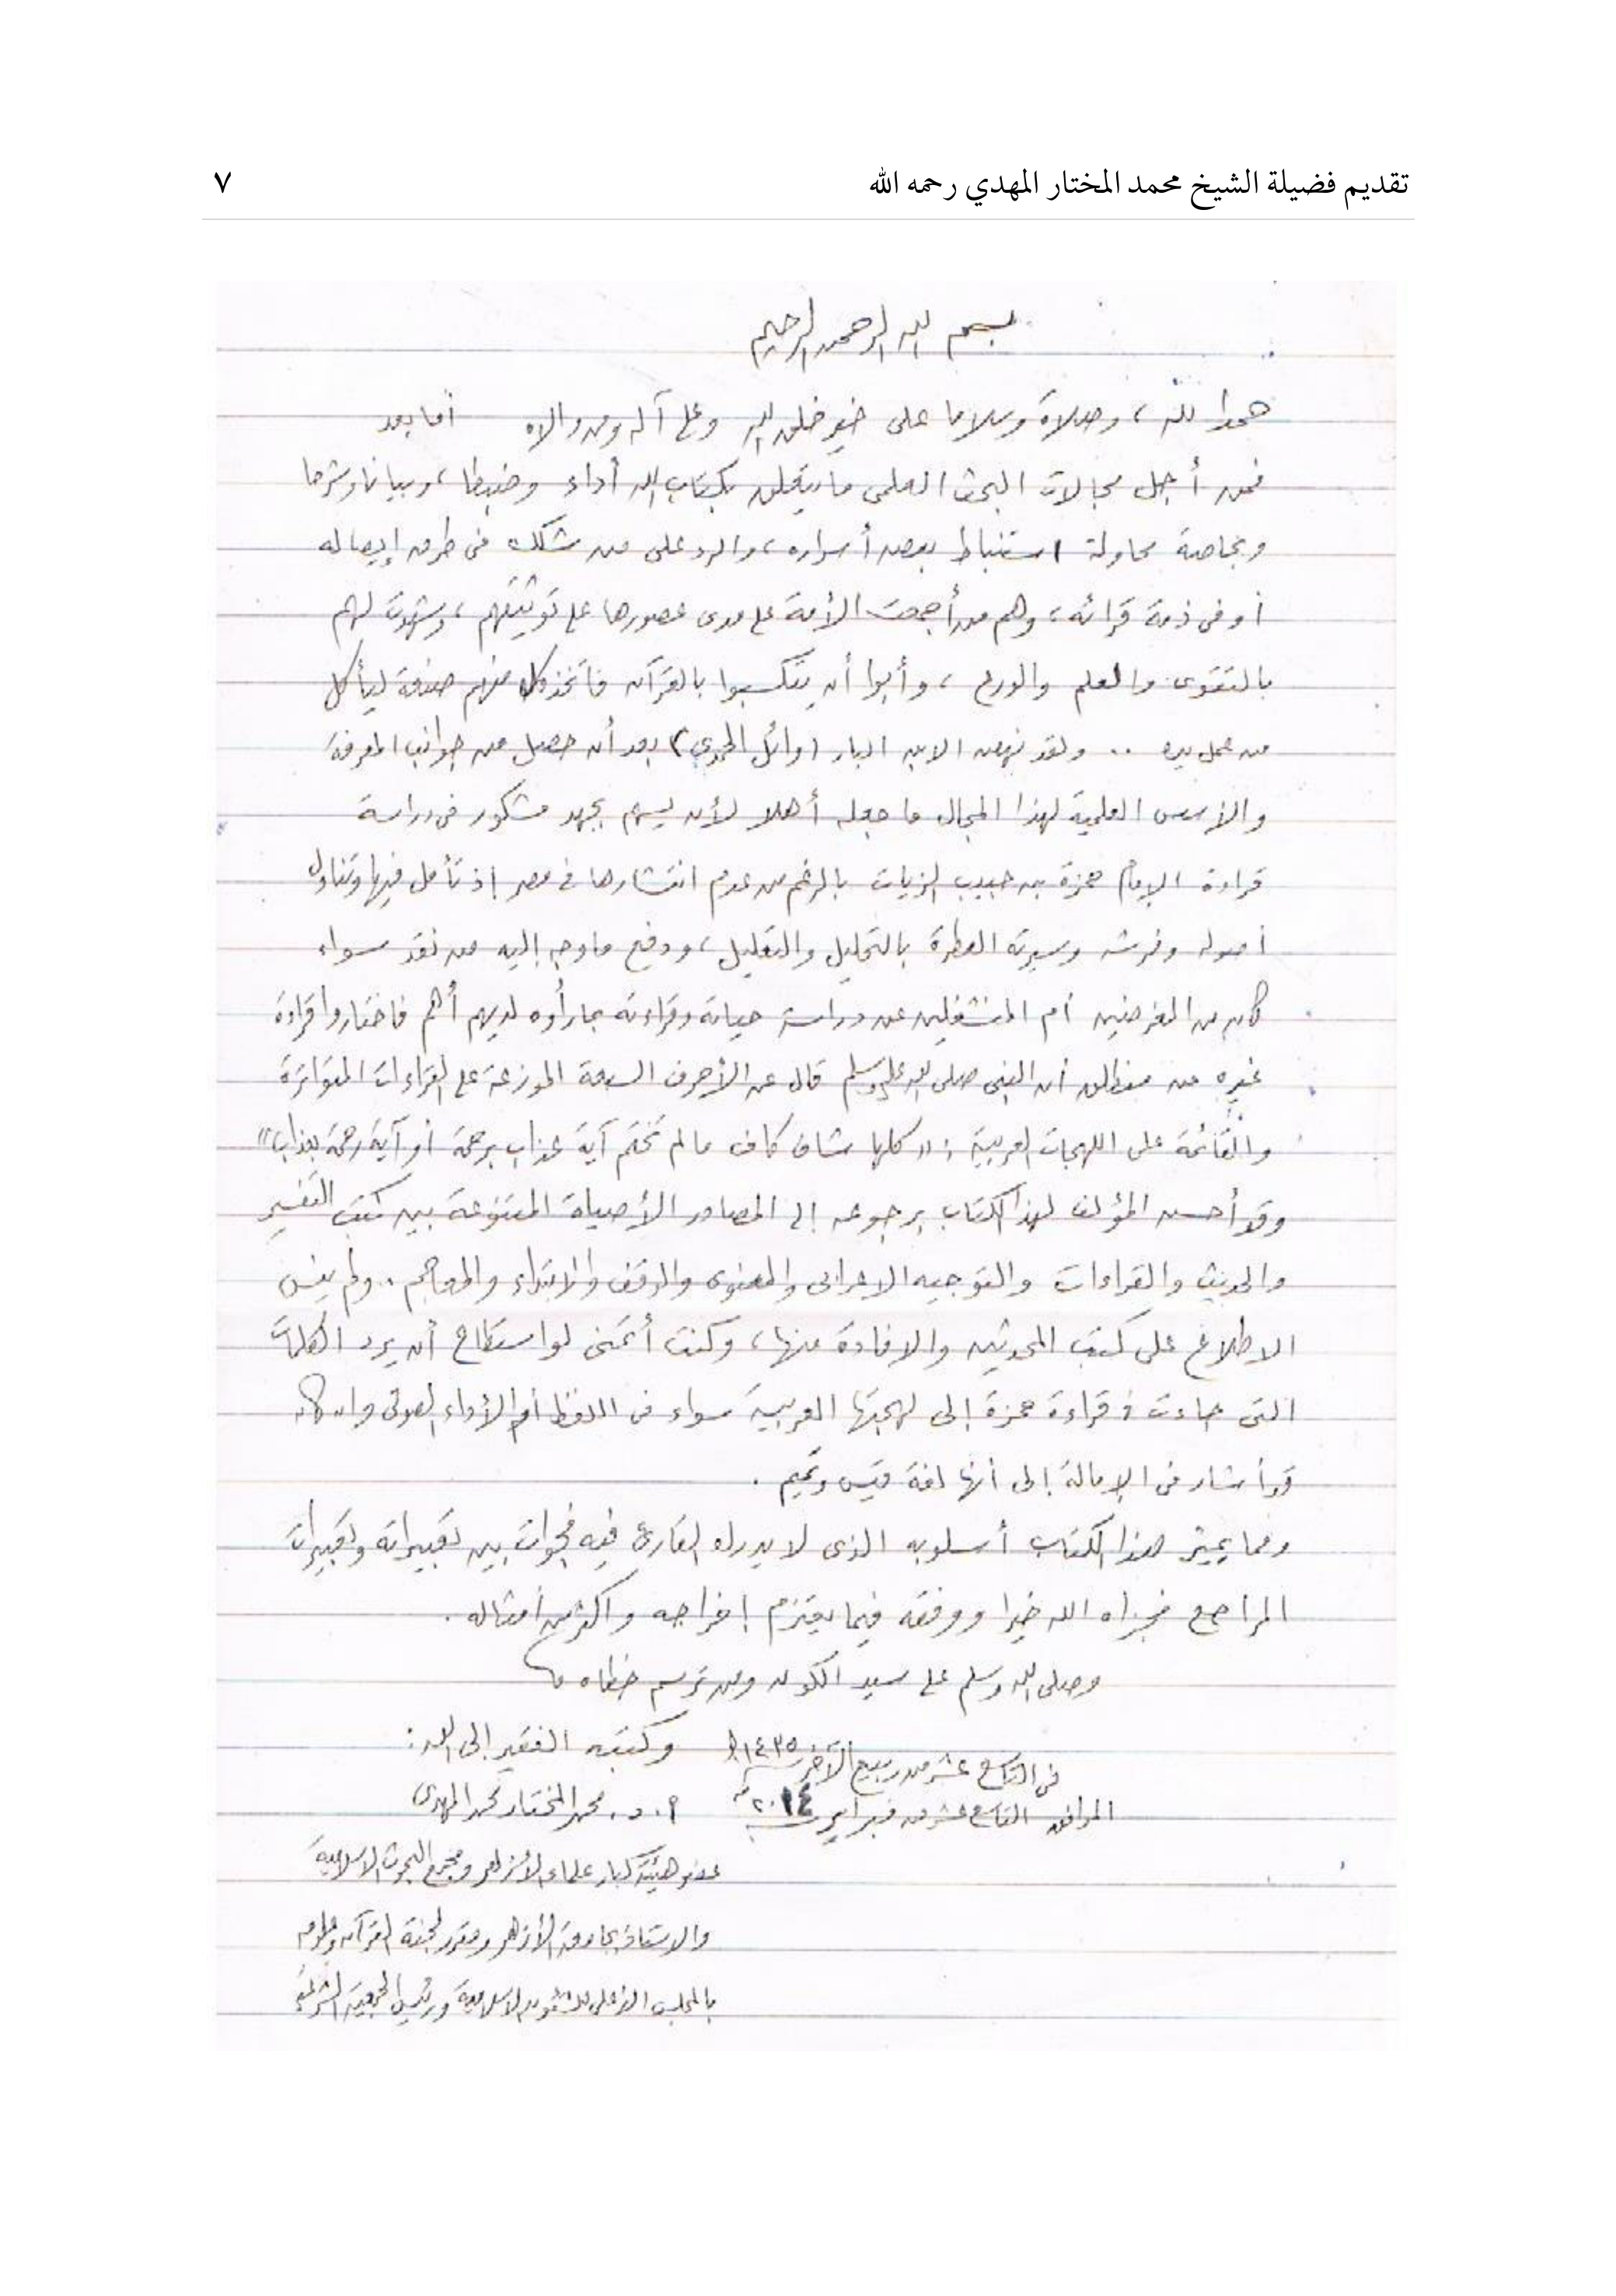 تقديم فضيلة الشيخ محمد المختار المهدي رحمه الله ٧
بسم الله الرحمن الرحيم
حمدا لله، وصلاة وسلاما على خير خلق الله وعلى آله ومن والاه أما بعد
فمن أجل مجالات البحث العلمى ما يتعلق بكتاب الله أداء وضبطا، وبيانا وشرحا
وبخاصة محاولة استنباط بعض أسراره، والرد على من شكك فى طرق إيصاله
أو فى ذمة قرائه، وهم من أجمعت الأمة على مدى عصورها على توثيقهم، وشهدت لهم
بالتقوى والعلم والورع، وأبوا أن يتكسبوا بالقرآن فاتخذ كل منهم صنعة ليأكل
من عمل يده .. ولقد نهض الابن البار (وائل الحمدي) بعد أن حصل من جوانب المعرفة
والأسس العلمية لهذا المجال ما جعله أهلا لأن يسهم بجهد مشكور فى دراسة
قراءة الإمام حمزة بن حبيب الزيات بالرغم من عدم انتشارها فى مصر إذ تأمل فيها وتناول
أصوله وفرشه وسيرته العطرة بالتحليل والتعليل، ودفع ما وجه إليه من نقد سواء
كان من المغرضين أم المنشغلين عن دراسة حياته وقراءته بما رأوه لديهم أهم فاختاروا قراءة
غيره من منطلق أن النبى صلى الله عليه وسلم قال عن الأحرف السبعة الموزعة على القراءات المتواترة
والقائمة على اللهجات العربية: "كلها شاف كاف ما لم تختم آية عذاب برحمة أو آية رحمة بعذاب"
وقد أحسن المؤلف لهذا الكتاب برجوعه إلى المصادر الأصيلة المتنوعة بين كتب التفسير
والحديث والقراءات والتوجيه الاعرابى والمعنوى والوقف والابتداء والمعاجم .. ولم ينس
الاطلاع على كتب المحدثين والافادة منها، وكنت أتمنى لو استطاع أن يرد الكلمات
التى جاءت فى قراءة حمزة إلى لهجتها العربية سواء فى اللفظ أم الأداء الصوتى وإن كان
قد أشار فى الإمالة إلى أنها لغة قيس وتميم .
ومما يميز هذا الكتاب أسلوبه الذى لا يدرك القارئ فيه فجوات بين تعبيراته وتعبيرات
المراجع فجزاه الله خيرا ووفقه فيما يعتزم إخراجه وأكثر من أمثاله .
وصلى الله وسلم على سيد الكون ومن ترسم خطاه
وكتبه الفقير إلى الله:
فى التاسع عشر من ربيع الآخر ١٤٣٥ه
الموافق التاسع عشر من فبراير ٢٠١٤م
أ.د. محمد المختار محمد المهدى
عضو هيئة كبار علماء الأزهر ومجمع البحوث الاسلامية
والاستاذ بجامعة الأزهر ومقرر لجنة القرآن وعلومه
بالمجلس الأعلى للشئون الاسلامية ورئيس الجمعية الشرعية